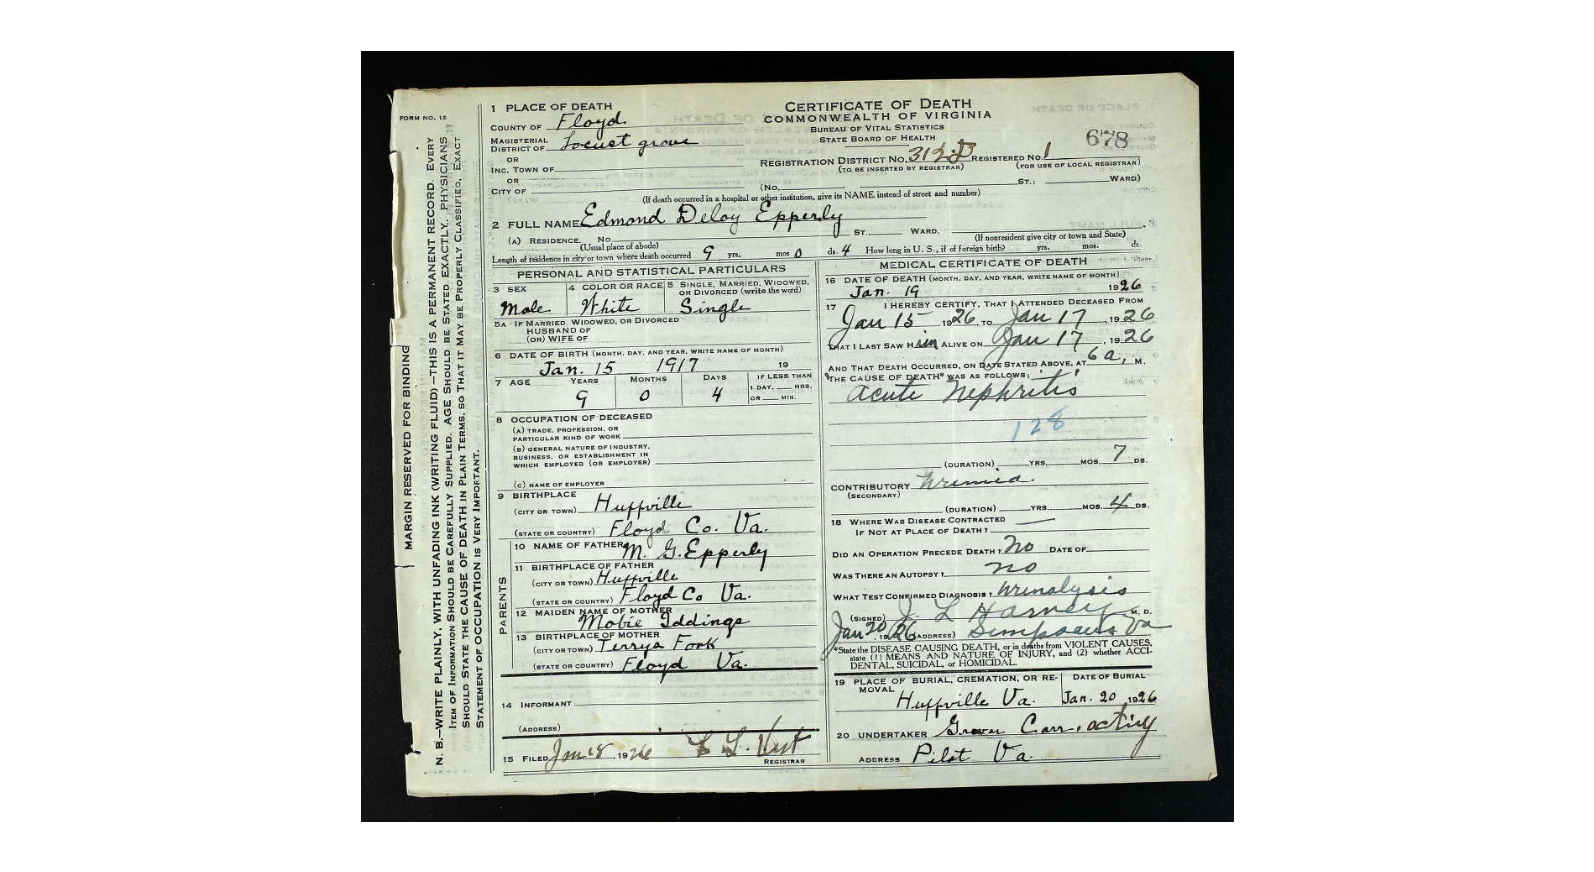 FORM NO. 12
MARGIN RESERVED FOR BINDING
N. B.—WRITE PLAINLY, WITH UNFADING INK (WRITING FLUID)—THIS IS A PERMANENT RECORD. EVERY
ITEM OF INFORMATION SHOULD BE CAREFULLY SUPPLIED. AGE SHOULD BE STATED EXACTLY. PHYSICIANS
SHOULD STATE THE CAUSE OF DEATH IN PLAIN TERMS, SO THAT IT MAY BE PROPERLY CLASSIFIED. EXACT
STATEMENT OF OCCUPATION IS VERY IMPORTANT.
1 PLACE OF DEATH
COUNTY OF Floyd
MAGISTERIAL
DISTRICT OF Locust grove
OR
INC. TOWN OF
OR
CITY OF
CERTIFICATE OF DEATH
COMMONWEALTH OF VIRGINIA
BUREAU OF VITAL STATISTICS
STATE BOARD OF HEALTH
678
REGISTRATION DISTRICT NO. 312 REGISTERED NO. 1
(TO BE INSERTED BY REGISTRAR) (FOR USE OF LOCAL REGISTRAR)
(NO. ST.; WARD)
(If death occurred in a hospital or other institution, give its NAME instead of street and number)
2 FULL NAME Edmond Deloy Epperly
(A) RESIDENCE. NO. ST. WARD.
(Usual place of abode) (If nonresident give city or town and State)
Length of residence in city or town where death occurred 9 yrs. mos 0 ds. 4 How long in U. S., if of foreign birth? yrs. mos. ds.
PERSONAL AND STATISTICAL PARTICULARS
3 SEX 4 COLOR OR RACE 5 SINGLE, MARRIED, WIDOWED,
OR DIVORCED (write the word)
Male White Single
5A IF MARRIED, WIDOWED, OR DIVORCED
HUSBAND OF
(OR) WIFE OF
6 DATE OF BIRTH (MONTH, DAY, AND YEAR, WRITE NAME OF MONTH)
Jan. 15 1917 19
7 AGE YEARS MONTHS DAYS IF LESS THAN
1 DAY, HRS.
OR MIN.
9 0 4
8 OCCUPATION OF DECEASED
(A) TRADE, PROFESSION, OR
PARTICULAR KIND OF WORK
(B) GENERAL NATURE OF INDUSTRY,
BUSINESS, OR ESTABLISHMENT IN
WHICH EMPLOYED (OR EMPLOYER)
(C) NAME OF EMPLOYER
9 BIRTHPLACE
(CITY OR TOWN) Huffville
(STATE OR COUNTRY) Floyd Co. Va.
PARENTS
10 NAME OF FATHER M. G. Epperly
11 BIRTHPLACE OF FATHER
(CITY OR TOWN) Huffville
(STATE OR COUNTRY) Floyd Co Va.
12 MAIDEN NAME OF MOTHER
Mobie Iddings
13 BIRTHPLACE OF MOTHER
(CITY OR TOWN) Terrys Fork
(STATE OR COUNTRY) Floyd Va.
14 INFORMANT
(ADDRESS)
15 FILED 1926
REGISTRAR
MEDICAL CERTIFICATE OF DEATH
16 DATE OF DEATH (MONTH, DAY, AND YEAR, WRITE NAME OF MONTH)
Jan. 19 1926
17 I HEREBY CERTIFY, THAT I ATTENDED DECEASED FROM
Jan 15 1926, TO Jan 17, 1926
THAT I LAST SAW HIM ALIVE ON Jan 17, 1926
AND THAT DEATH OCCURRED, ON DATE STATED ABOVE, AT 6 a, M.
THE CAUSE OF DEATH* WAS AS FOLLOWS:
acute Nephritis
128
(DURATION) YRS. MOS. 7 DS.
CONTRIBUTORY Uremia.
(SECONDARY)
(DURATION) YRS. MOS. 4 DS.
18 WHERE WAS DISEASE CONTRACTED
IF NOT AT PLACE OF DEATH?
DID AN OPERATION PRECEDE DEATH? no DATE OF
WAS THERE AN AUTOPSY? no
WHAT TEST CONFIRMED DIAGNOSIS? Urinalysis
(SIGNED) J. L. Harvey, M. D.
Jan 20, 1926 (ADDRESS) Simpsons Va
*State the DISEASE CAUSING DEATH, or in deaths from VIOLENT CAUSES,
state (1) MEANS AND NATURE OF INJURY, and (2) whether ACCI-
DENTAL, SUICIDAL, or HOMICIDAL.
19 PLACE OF BURIAL, CREMATION, OR RE- DATE OF BURIAL
MOVAL
Huffville Va. Jan. 20, 1926
20 UNDERTAKER Carr, acting
ADDRESS Pilot Va.